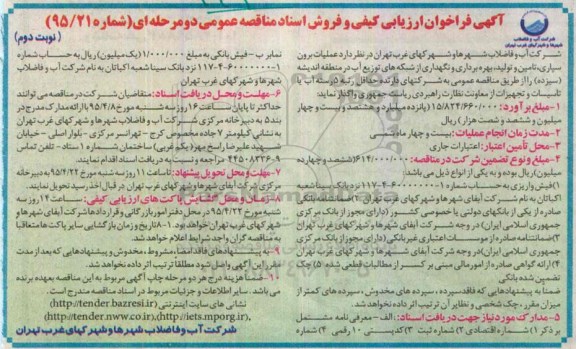 آگهی فراخوان ارزیابی کیفی و فروش اسناد مناقصه عمومی دو مرحله ای (شماره ۹۵/۲۱)
(نوبت دوم)
شرکت آب و فاضلاب
شهرها و شهرکهای غرب تهران
شرکت آب و فاضلاب شهرها و شهرکهای غرب تهران در نظر دارد عملیات برون
سپاری، تامین و تولید، بهره برداری و نگهداری از شبکه های توزیع آب در منطقه اندیشه
(سیزده) را از طریق مناقصه عمومی به شرکتهای دارنده حداقل رتبه در رسته آب یا
تاسیسات و تجهیزات از معاونت نظارت راهبردی ریاست جمهوری واگذار نمایند.
۱- مبلغ برآورد: ۱۵/۸۲۴/۶۶۰/۰۰۰ (پانزده میلیارد و هشتصد و بیست و چهار
میلیون و ششصد و شصت هزار) ریال
۲- مدت زمان انجام عملیات: بیست و چهار ماه شمسی
۳- محل تامین اعتبار: اعتبارات جاری
۴- مبلغ و نوع تضمین شرکت در مناقصه: ۶۱۴/۰۰۰/۰۰۰ (ششصد و چهارده
میلیون) ریال بوده و به یکی از انواع ذیل می باشد:
۱) فیش واریزی به حساب شماره ۱-۱۱۷-۴۰۶۰۰۰۰۰۰ نزد بانک سینا شعبه
اکباتان به نام شرکت آبفای شهرها و شهرکهای غرب تهران ۲) ضمانتنامه بانکی
صادره از یکی از بانکهای دولتی یا خصوصی کشور (دارای مجوز از بانک مرکزی
جمهوری اسلامی ایران) در وجه شرکت آبفای شهرها و شهرکهای غرب تهران
۳) ضمانتنامه صادره از موسسات اعتباری غیر بانکی (دارای مجوز از بانک مرکزی
جمهوری اسلامی ایران) در وجه شرکت آبفای شهرها و شهرکهای غرب تهران
۴) ارائه گواهی صادره از امور مالی مبنی بر کسر از مطالبات قطعی شده ۵) چک
تضمین شده بانکی
ضمنا به پیشنهادهایی که فاقد سپرده، سپرده های مخدوش، سپرده های کمتر از
میزان مقرر، چک شخصی و نظایر آن ترتیب اثر داده نخواهد شد.
۵- مدارک مورد نیاز جهت دریافت اسناد: الف- معرفی نامه مشتمل
بر ذکر ۱) شماره اقتصادی ۲) شماره ثبت ۳) کد پستی ۱۰ رقمی ۴) شماره
نمابر ب- فیش بانکی به مبلغ ۱/۰۰۰/۰۰۰ (یک میلیون) ریال به حساب شماره
نزد بانک سینا شعبه اکباتان به نام شرکت آب و فاضلاب
شهرها و شهرکهای غرب تهران
۶- مهلت و محل دریافت اسناد: متقاضیان شرکت در مناقصه می توانند
حداکثر تا پایان ساعت ۱۶ روز سه شنبه مورخ ۹۵/۴/۸ با ارائه مدارک مندرج در
بند ۵ به دبیرخانه مرکزی شرکت آب و فاضلاب شهرها و شهرکهای غرب تهران
به نشانی کیلومتر ۷ جاده مخصوص کرج - تهرانسر مرکزی - بلوار اصلی - خیابان
شهید علیرضا راسخ مهر (یکم غربی) ساختمان شماره ۱ ستاد - تلفن تماس
۹-۴۴۵۰۸۳۳۶ مراجعه و نسبت به دریافت اسناد اقدام نمایند.
۷- مهلت و محل تحویل پیشنهاد: تا ساعت ۱۱ روز سه شنبه مورخ ۹۵/۴/۲۲ به دبیرخانه
مرکزی شرکت آبفای شهرها و شهرکهای غرب تهران در قبال اخذ رسید تحویل نمایند.
۸- زمان و محل گشایش پاکت های ارزیابی کیفی: ساعت ۱۴ روز سه
شنبه مورخ ۹۵/۴/۲۲ در محل دفتر امور بازرگانی و قراردادها شرکت آبفای شهرها و
شهرکهای غرب تهران خواهد بود. ۱-۸: تاریخ و زمان بازگشایی سایر پاکت ها متعاقبا
به مناقصه گران واجد شرایط اعلام خواهد شد.
۹- به پیشنهادهای فاقد امضا، مشروط، مخدوش و پیشنهادهایی که بعد از مدت
مقرر این آگهی واصل شود مطلقا ترتیب اثر داده نخواهد شد.
۱۰- ضمنا هزینه درج هر دو مرحله چاپ آگهی مربوط به این مناقصه بعهده برنده
می باشد. سایر اطلاعات و جزئیات مربوط در اسناد مناقصه مندرج است.
نشانی های سایت اینترنتی (http://tender.bazresi.ir)
(http://tender.nww.co.ir)، (http://iets.mporg.ir)
شرکت آب و فاضلاب شهرها و شهرکهای غرب تهران